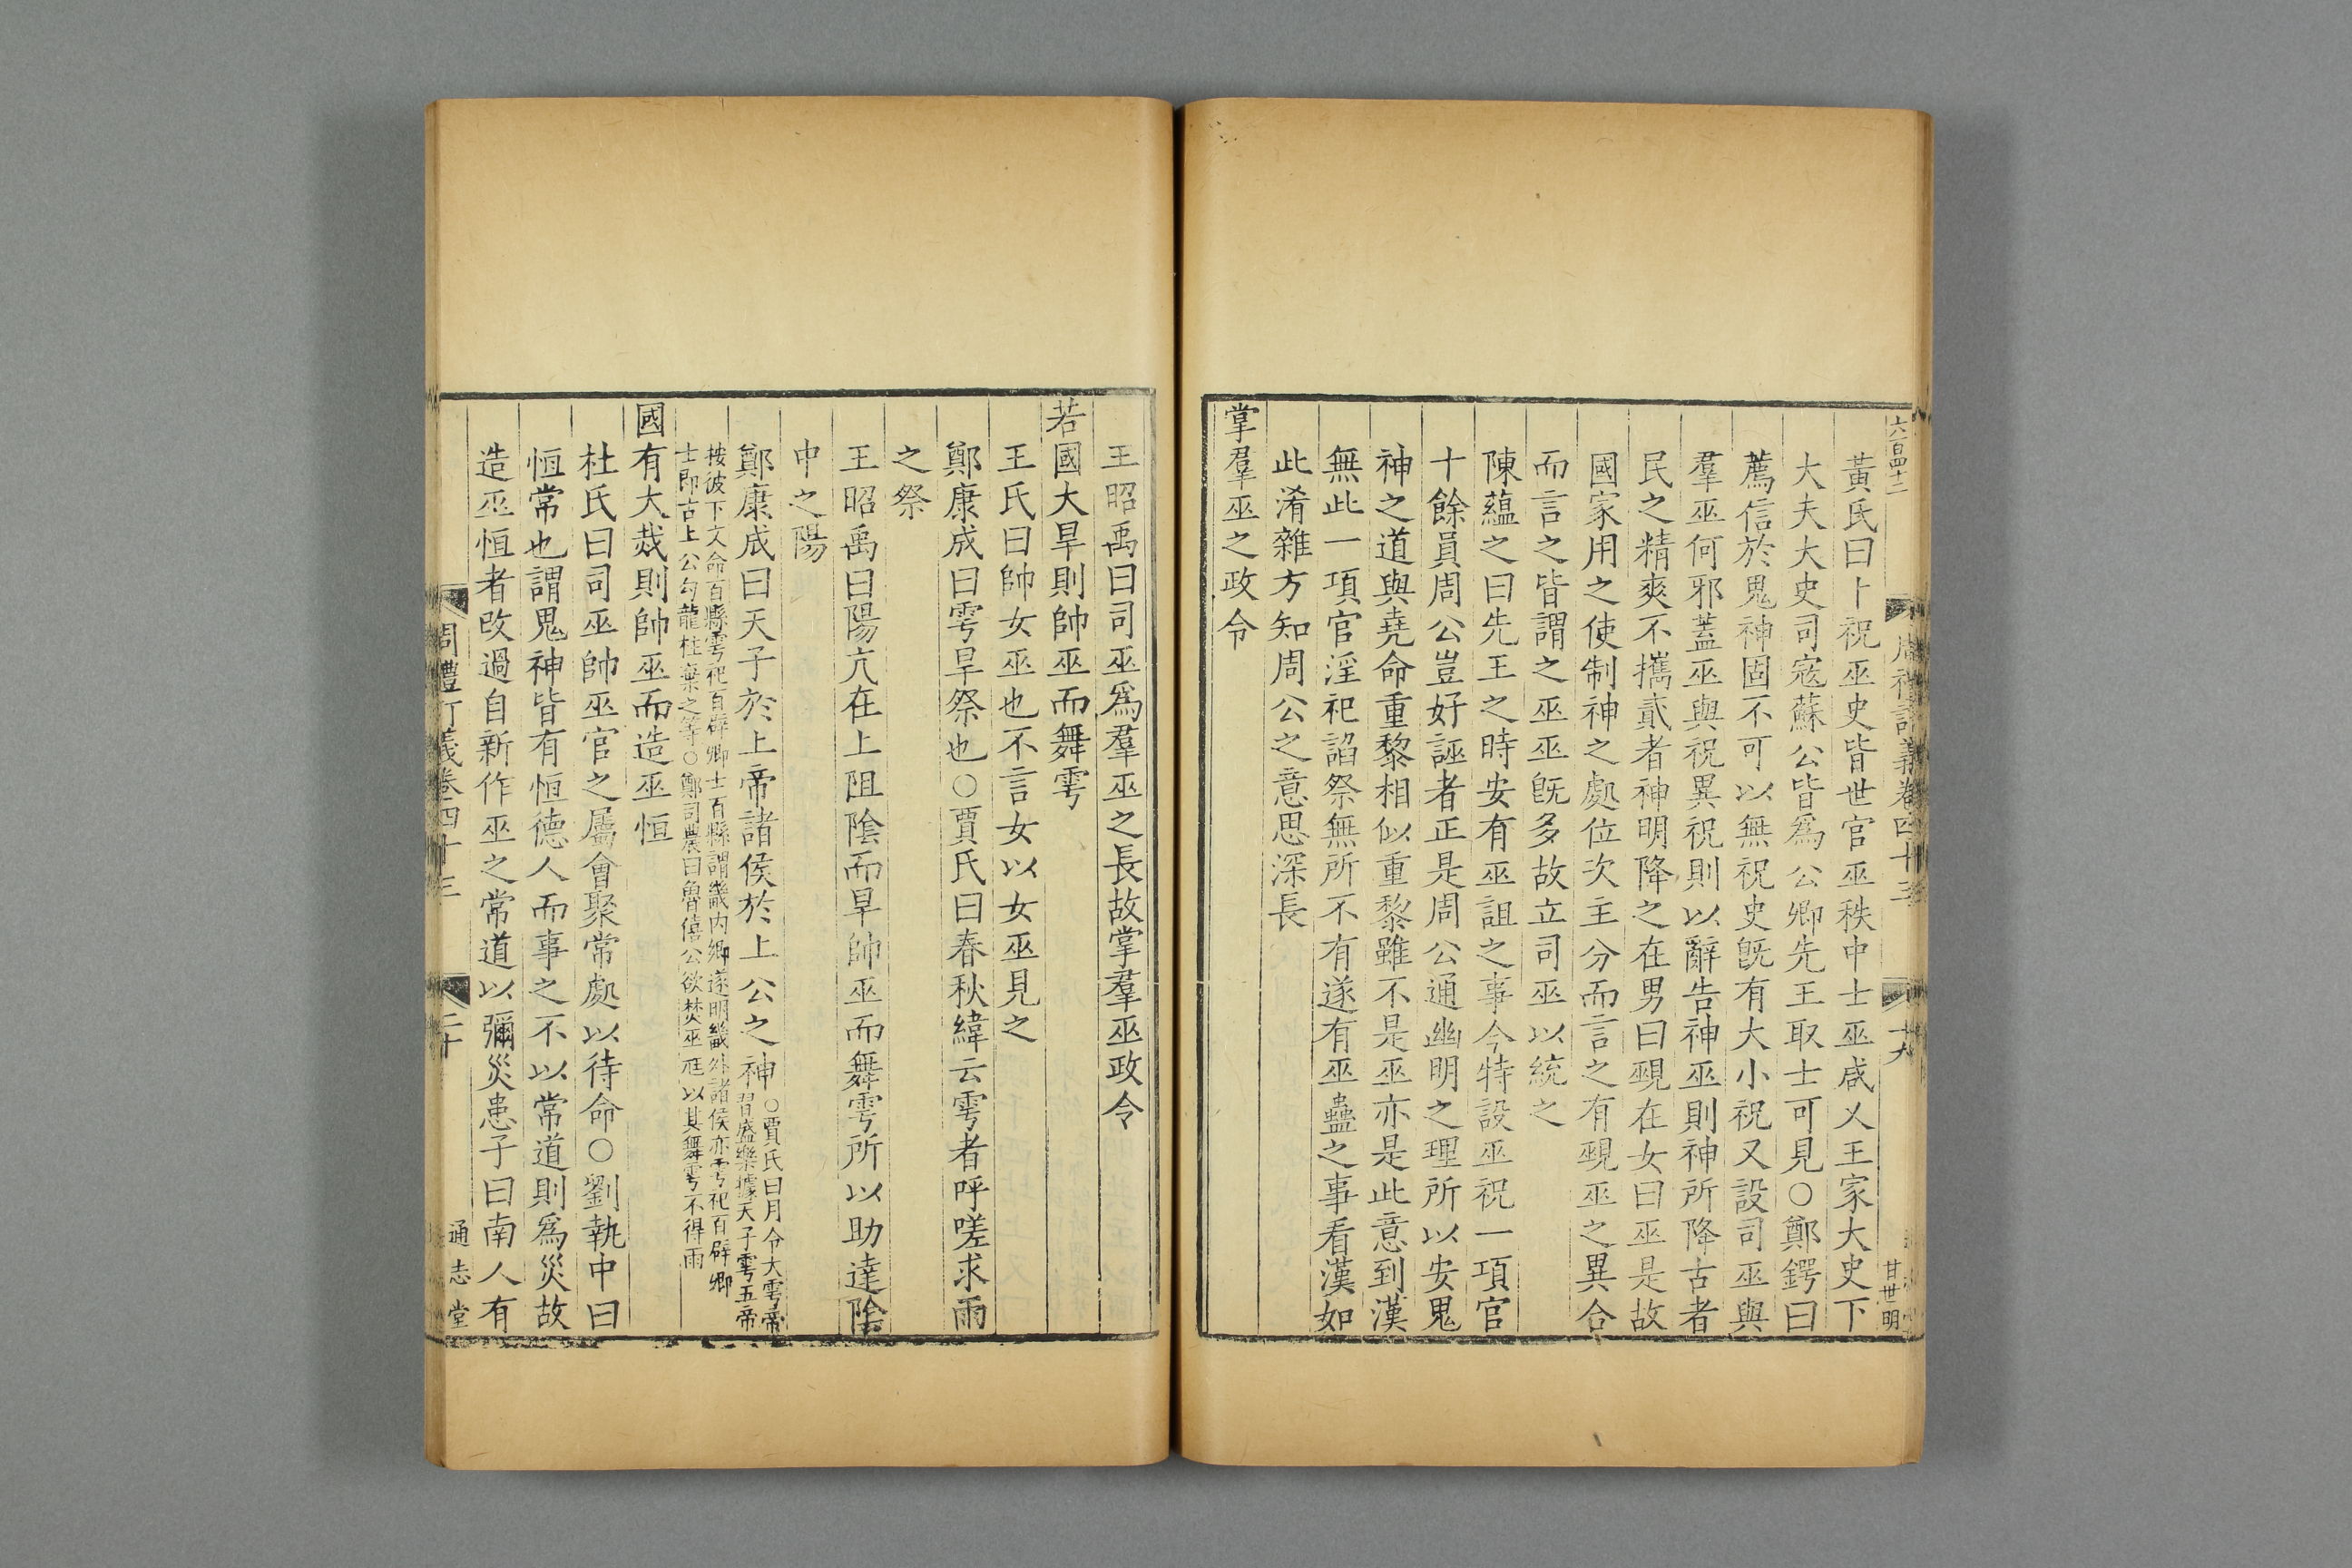 六百四十二
周禮訂義卷四十三
十九
甘世明
黃氏曰卜祝巫史皆世官巫秩中士巫咸乂王家大史下
大夫大史司寇蘇公皆爲公卿先王取士可見○鄭鍔曰
薦信於鬼神固不可以無祝史旣有大小祝又設司巫與
羣巫何邪蓋巫與祝異祝則以辭告神巫則神所降古者
民之精爽不攜貳者神明降之在男曰覡在女曰巫是故
國家用之使制神之處位次主分而言之有覡巫之異合
而言之皆謂之巫巫旣多故立司巫以統之
陳蘊之曰先王之時安有巫詛之事今特設巫祝一項官
十餘員周公豈好誣者正是周公通幽明之理所以安鬼
神之道與堯命重黎相似重黎雖不是巫亦是此意到漢
無此一項官淫祀諂祭無所不有遂有巫蠱之事看漢如
此淆雜方知周公之意思深長
掌羣巫之政令
王昭禹曰司巫爲羣巫之長故掌羣巫政令
若國大旱則帥巫而舞雩
王氏曰帥女巫也不言女以女巫見之
鄭康成曰雩旱祭也○賈氏曰春秋緯云雩者呼嗟求雨
之祭
王昭禹曰陽亢在上阻陰而旱帥巫而舞雩所以助達陰
中之陽
鄭康成曰天子於上帝諸侯於上公之神○賈氏曰月令大雩帝
習盛樂據天子雩五帝
按彼下文命百縣雩祀百辟卿士百縣謂畿内鄉遂明畿外諸侯亦雩祀百辟卿
士即古上公句龍柱棄之等○鄭司農曰魯僖公欲焚巫尫以其舞雩不得雨
國有大烖則帥巫而造巫恒
杜氏曰司巫帥巫官之屬會聚常處以待命○劉執中曰
恒常也謂鬼神皆有恒德人而事之不以常道則爲災故
造巫恒者改過自新作巫之常道以彌災患子曰南人有
周禮訂義卷四十三
二十
通志堂